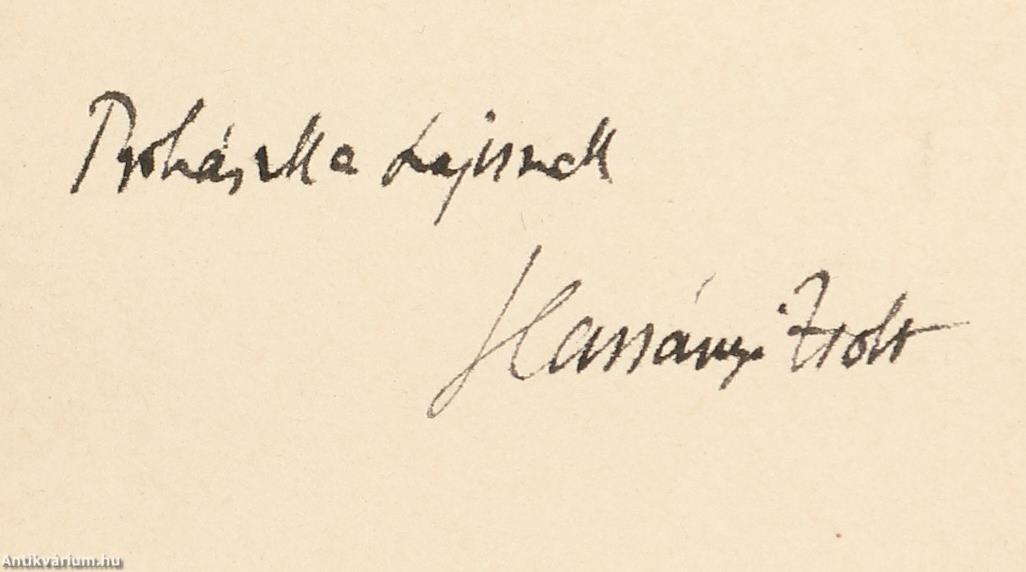 Prohászka Lajosnak
Harsányi Zsolt
Antikvárium.hu